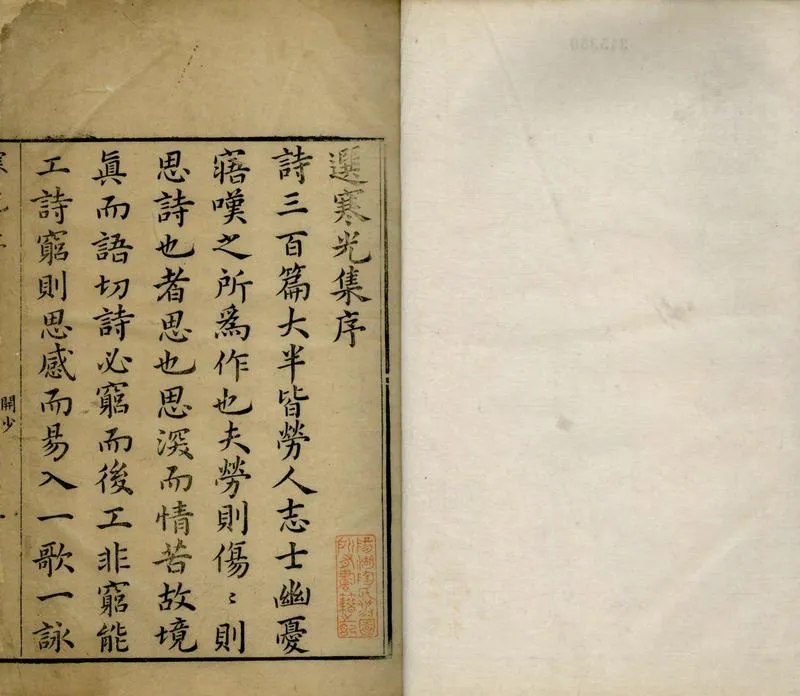 選寒光集序
詩三百篇大半皆勞人志士幽憂
寤嘆之所爲作也夫勞則傷〻則
思詩也者思也思深而情苦故境
眞而語切詩必窮而後工非窮能
工詩窮則思感而易入一歌一詠
開少